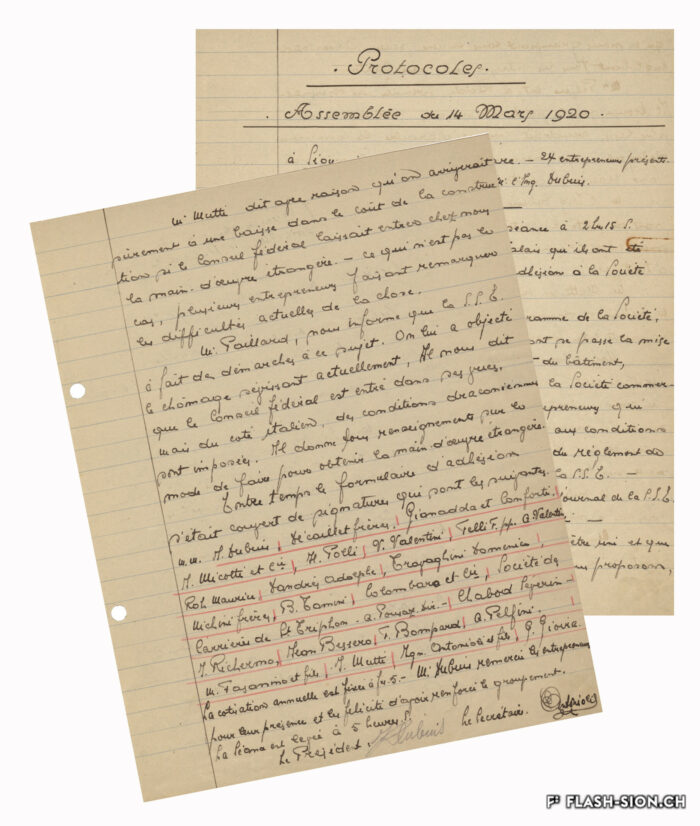 · Protocoles ·
· Assemblée du 14 Mars 1920 ·
24 entrepreneurs présents
l'Ing. Dubuis.
séance à 2h15 S.
qu'ils ont été
adhésion à la Société
programme de la Société,
ont se passe la mise
du bâtiment,
la Société commer-
entrepreneurs qui
aux conditions
de règlement de
la S.S.E. —
Journal de la S.S.E.
être uni et que
proposons,
Mr Mutti dit avec raison qu'on arriverait
sûrement à une baisse dans le coût de la construc-
tion si le Conseil fédéral laissait entrer chez nous
la main-d'œuvre étrangère. — ce qui n'est pas le
cas, plusieurs entrepreneurs faisant remarquer
les difficultés actuelles de la chose.
Mr. Paillard, nous informe que la S.S.E.
à fait des démarches à ce sujet. On lui a objecté
le chômage sévissant actuellement, Il nous dit
que le Conseil fédéral est entré dans ses vues,
mais du côté italien, des conditions draconiennes
sont imposées. Il donne tous renseignements sur le
mode de faire pour obtenir la main d'œuvre étrangère.
Entre temps le formulaire d'adhésion
s'était couvert de signatures qui sont les suivantes.
M.M. J. Dubuis, Décaillet frères, Gianadda et Conforti.
J. Micotti et Cie, H. Polli, V. Valentini, Felli F. pp. A. Valentin,
Rob. Maurice, Vandrès Adolphe, Travaghini Domenico
Michini frères, B. Tamini, Colombara et Cie, Société des
Carrières de St Triphon. — Chabod Séverin —
J. Richermo, Jean Bessero, F. Bompard, A. Pelfini.
M. Fasanino et fils, J. Mutti, Antonioli et fils, G. Giovia.
La cotisation annuelle est fixée à frs. 5.- Mr Dubuis remercie les entrepreneurs
pour leur présence et les félicite d'avoir renforcé le groupement.
La séance est levée à 5 heures S.
Le Président. Le Secrétaire.
J. Dubuis
FLASH-SION.CH